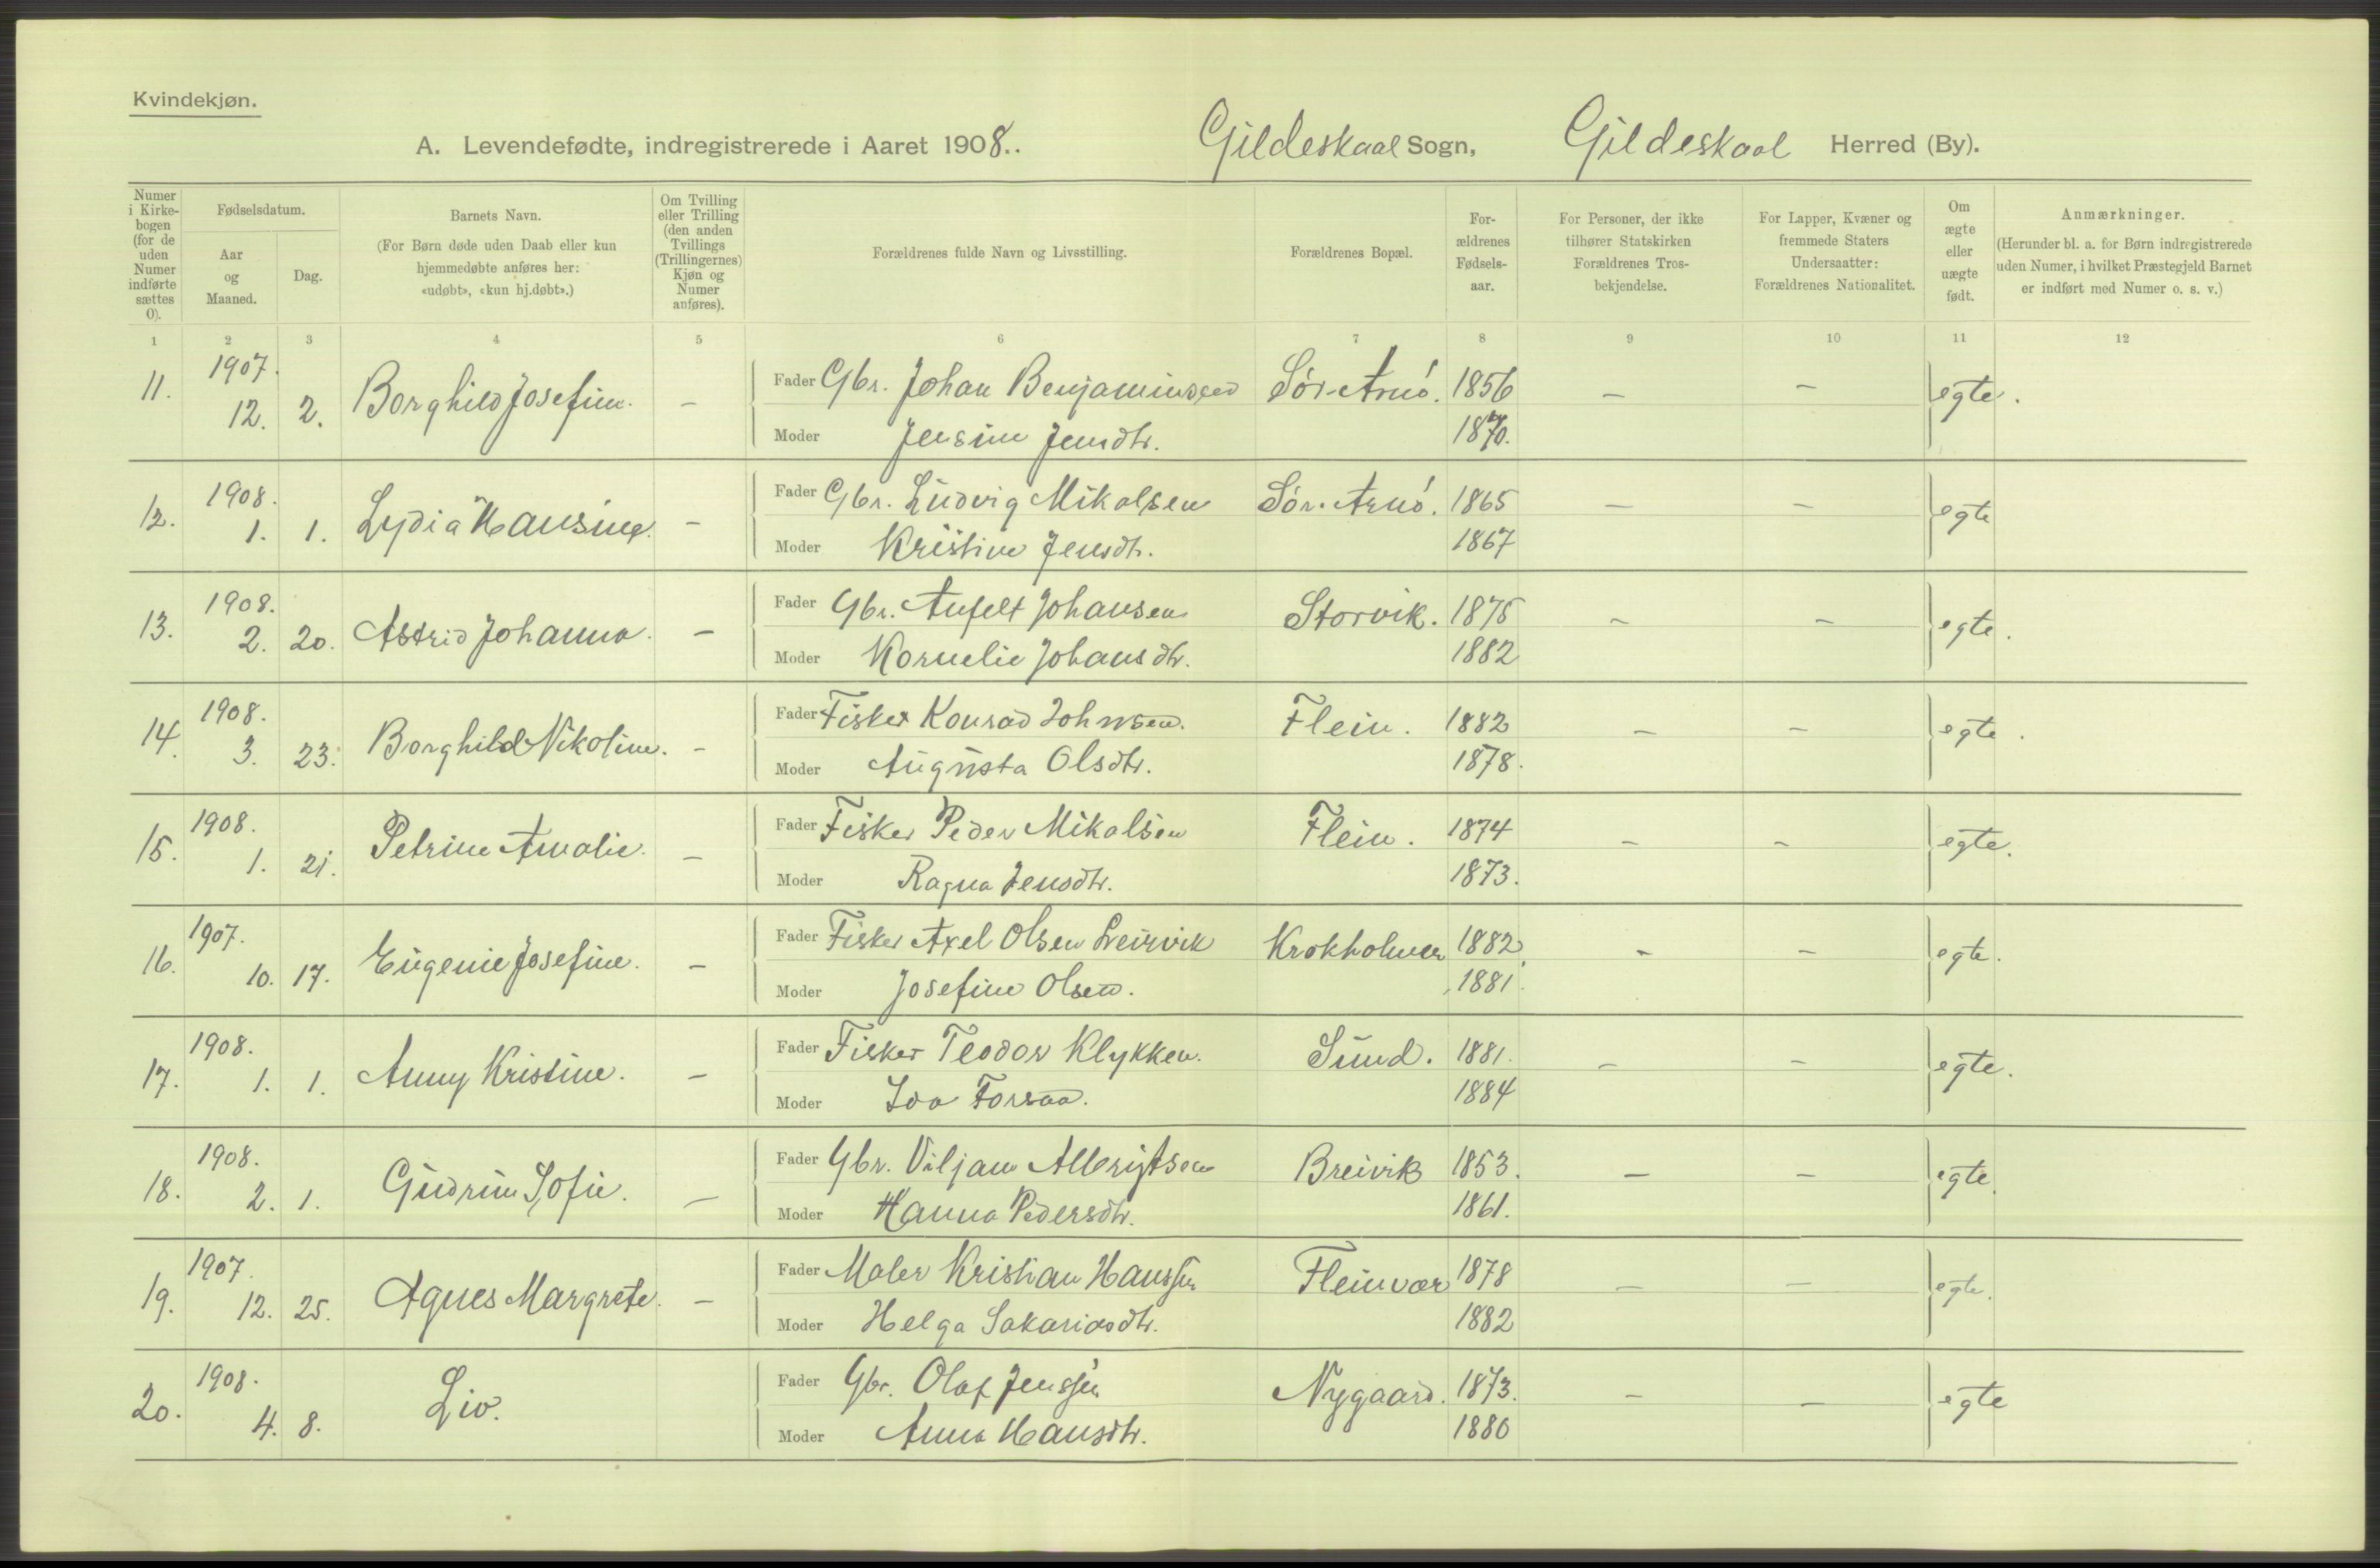 Kvindekjøn.
A. Levendefødte, indregistrerede i Aaret 1908.. Gildeskaal Sogn, Gildeskaal Herred (By).
Numer i Kirke- bogen (for de uden Numer indførte sættes 0).
Fødselsdatum.
Aar og Maaned.
Dag.
Barnets Navn.
(For Børn døde uden Daab eller kun hjemmedøbte anføres her: «udøbt», «kun hj.døbt».)
Om Tvilling eller Trilling (den anden Tvillings (Trillingernes) Kjøn og Numer anføres).
Forældrenes fulde Navn og Livsstilling.
Forældrenes Bopæl.
For- ældrenes Fødsels- aar.
For Personer, der ikke tilhører Statskirken Forældrenes Tros- bekjendelse.
For Lapper, Kvæner og fremmede Staters Undersaatter: Forældrenes Nationalitet.
Om ægte eller uægte født.
Anmærkninger.
(Herunder bl. a. for Børn indregistrerede uden Numer, i hvilket Præstegjeld Barnet er indført med Numer o. s. v.)
1 2 3 4 5 6 7 8 9 10 11 12
11. 1907. 12. 2. Borghild Josefine. - Fader Gbr. Johan Benjaminsen Sör-Arnö. 1856 - - egte.
Moder Jensine Jensdtr. 1870.
12. 1908. 1. 1. Lydia Hansine. - Fader Gbr. Ludvig Mikalsen Sör-Arnö. 1865 - - egte
Moder Kristine Jensdtr. 1867
13. 1908. 2. 20. Astrid Johanna. - Fader Gbr. Anfelt Johansen Storvik. 1875 - - egte.
Moder Kornelie Johansdtr. 1882
14. 1908. 3. 23. Borghild Nikoline. - Fader Fisker Konrad Johnsen. Flein. 1882 - - egte.
Moder Augusta Olsdtr. 1878.
15. 1908. 1. 21. Petrine Amalie. - Fader Fisker Peder Mikalsen Flein. 1874 - - egte.
Moder Ragna Jensdtr. 1873.
16. 1907. 10. 17. Eugenie Josefine. - Fader Fisker Axel Olsen Leirvik Krokholmen 1882 - - egte.
Moder Josefine Olsen. 1881.
17. 1908. 1. 1. Anny Kristine. - Fader Fisker Teodor Klykken. Sund. 1881. - - egte.
Moder Ida Forsaa. 1884
18. 1908. 2. 1. Gudrun Sofie. - Fader Gbr. Viljam Albrigtsen Breivik 1853. - - egte.
Moder Hanna Pedersdtr. 1861.
19. 1907. 12. 25. Agnes Margrete. - Fader Maler Kristian Hanssen Fleinvær 1878 - - egte.
Moder Helga Sakariasdtr. 1882
20. 1908. 4. 8. Liv. Fader Gbr. Olaf Jenssen Nygaard. 1873. - - egte
Moder Anna Hansdtr. 1880